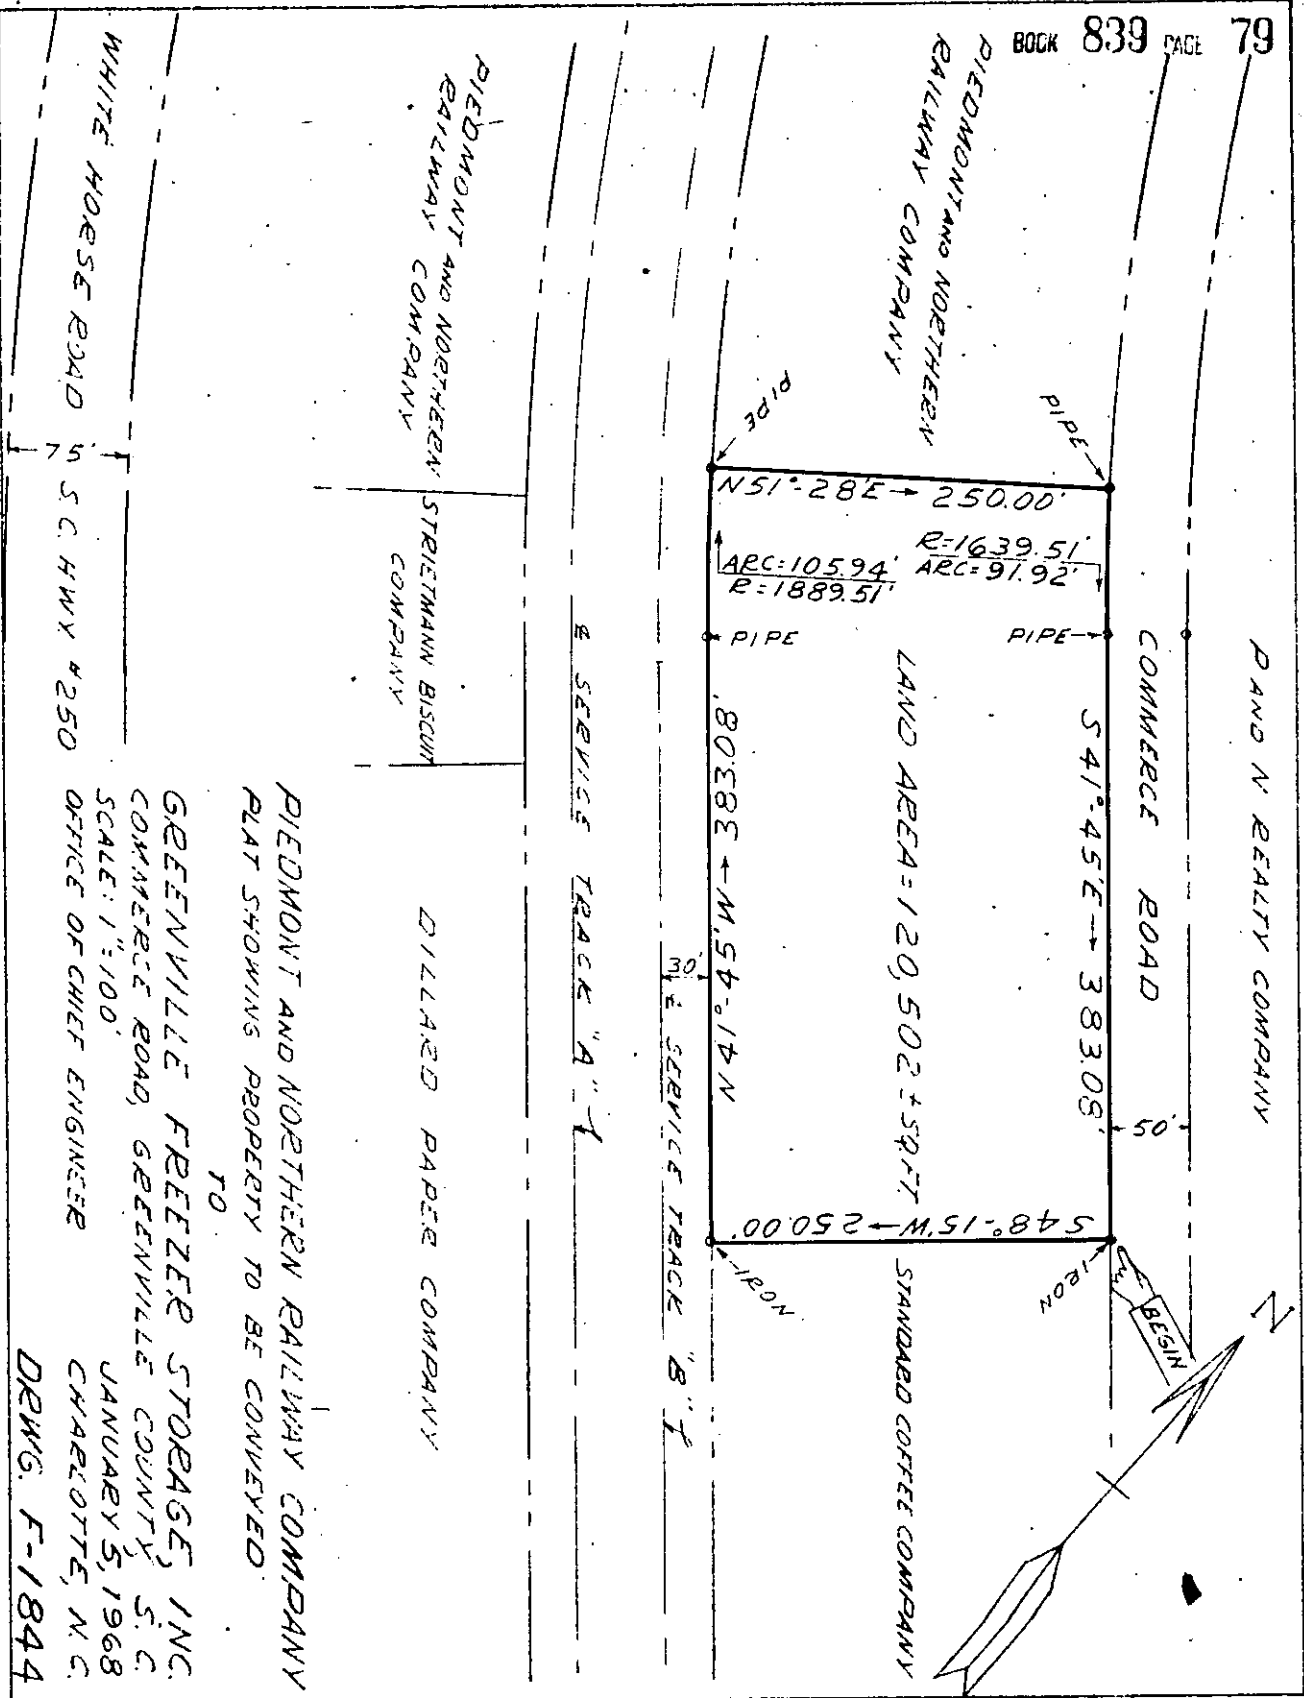 BOOK 839 PAGE 79
P AND N REALTY COMPANY
COMMERCE ROAD
50'
PIEDMONT AND NORTHERN
RAILWAY COMPANY
PIPE
PIPE
S 41°-45'E → 383.08'
IRON
BEGIN
N
N51°-28'E → 250.00'
R=1639.51'
ARC=91.92'
ARC=105.94'
R=1889.51'
LAND AREA=120,502 ± SQ.FT.
S 48°-15'W → 250.00'
STANDARD COFFEE COMPANY
PIPE
PIPE
N 41°-45'W → 383.08'
IRON
30'
℄ SERVICE TRACK "B"
℄ SERVICE TRACK "A"
PIEDMONT AND NORTHERN
RAILWAY COMPANY
STRIETMANN BISCUIT
COMPANY
DILLARD PAPER COMPANY
WHITE HORSE ROAD S.C. HWY #250
75'
PIEDMONT AND NORTHERN RAILWAY COMPANY
PLAT SHOWING PROPERTY TO BE CONVEYED
TO
GREENVILLE FREEZER STORAGE, INC.
COMMERCE ROAD, GREENVILLE COUNTY, S.C.
SCALE: 1"=100' JANUARY 5, 1968
OFFICE OF CHIEF ENGINEER CHARLOTTE, N.C.
DRWG. F-1844